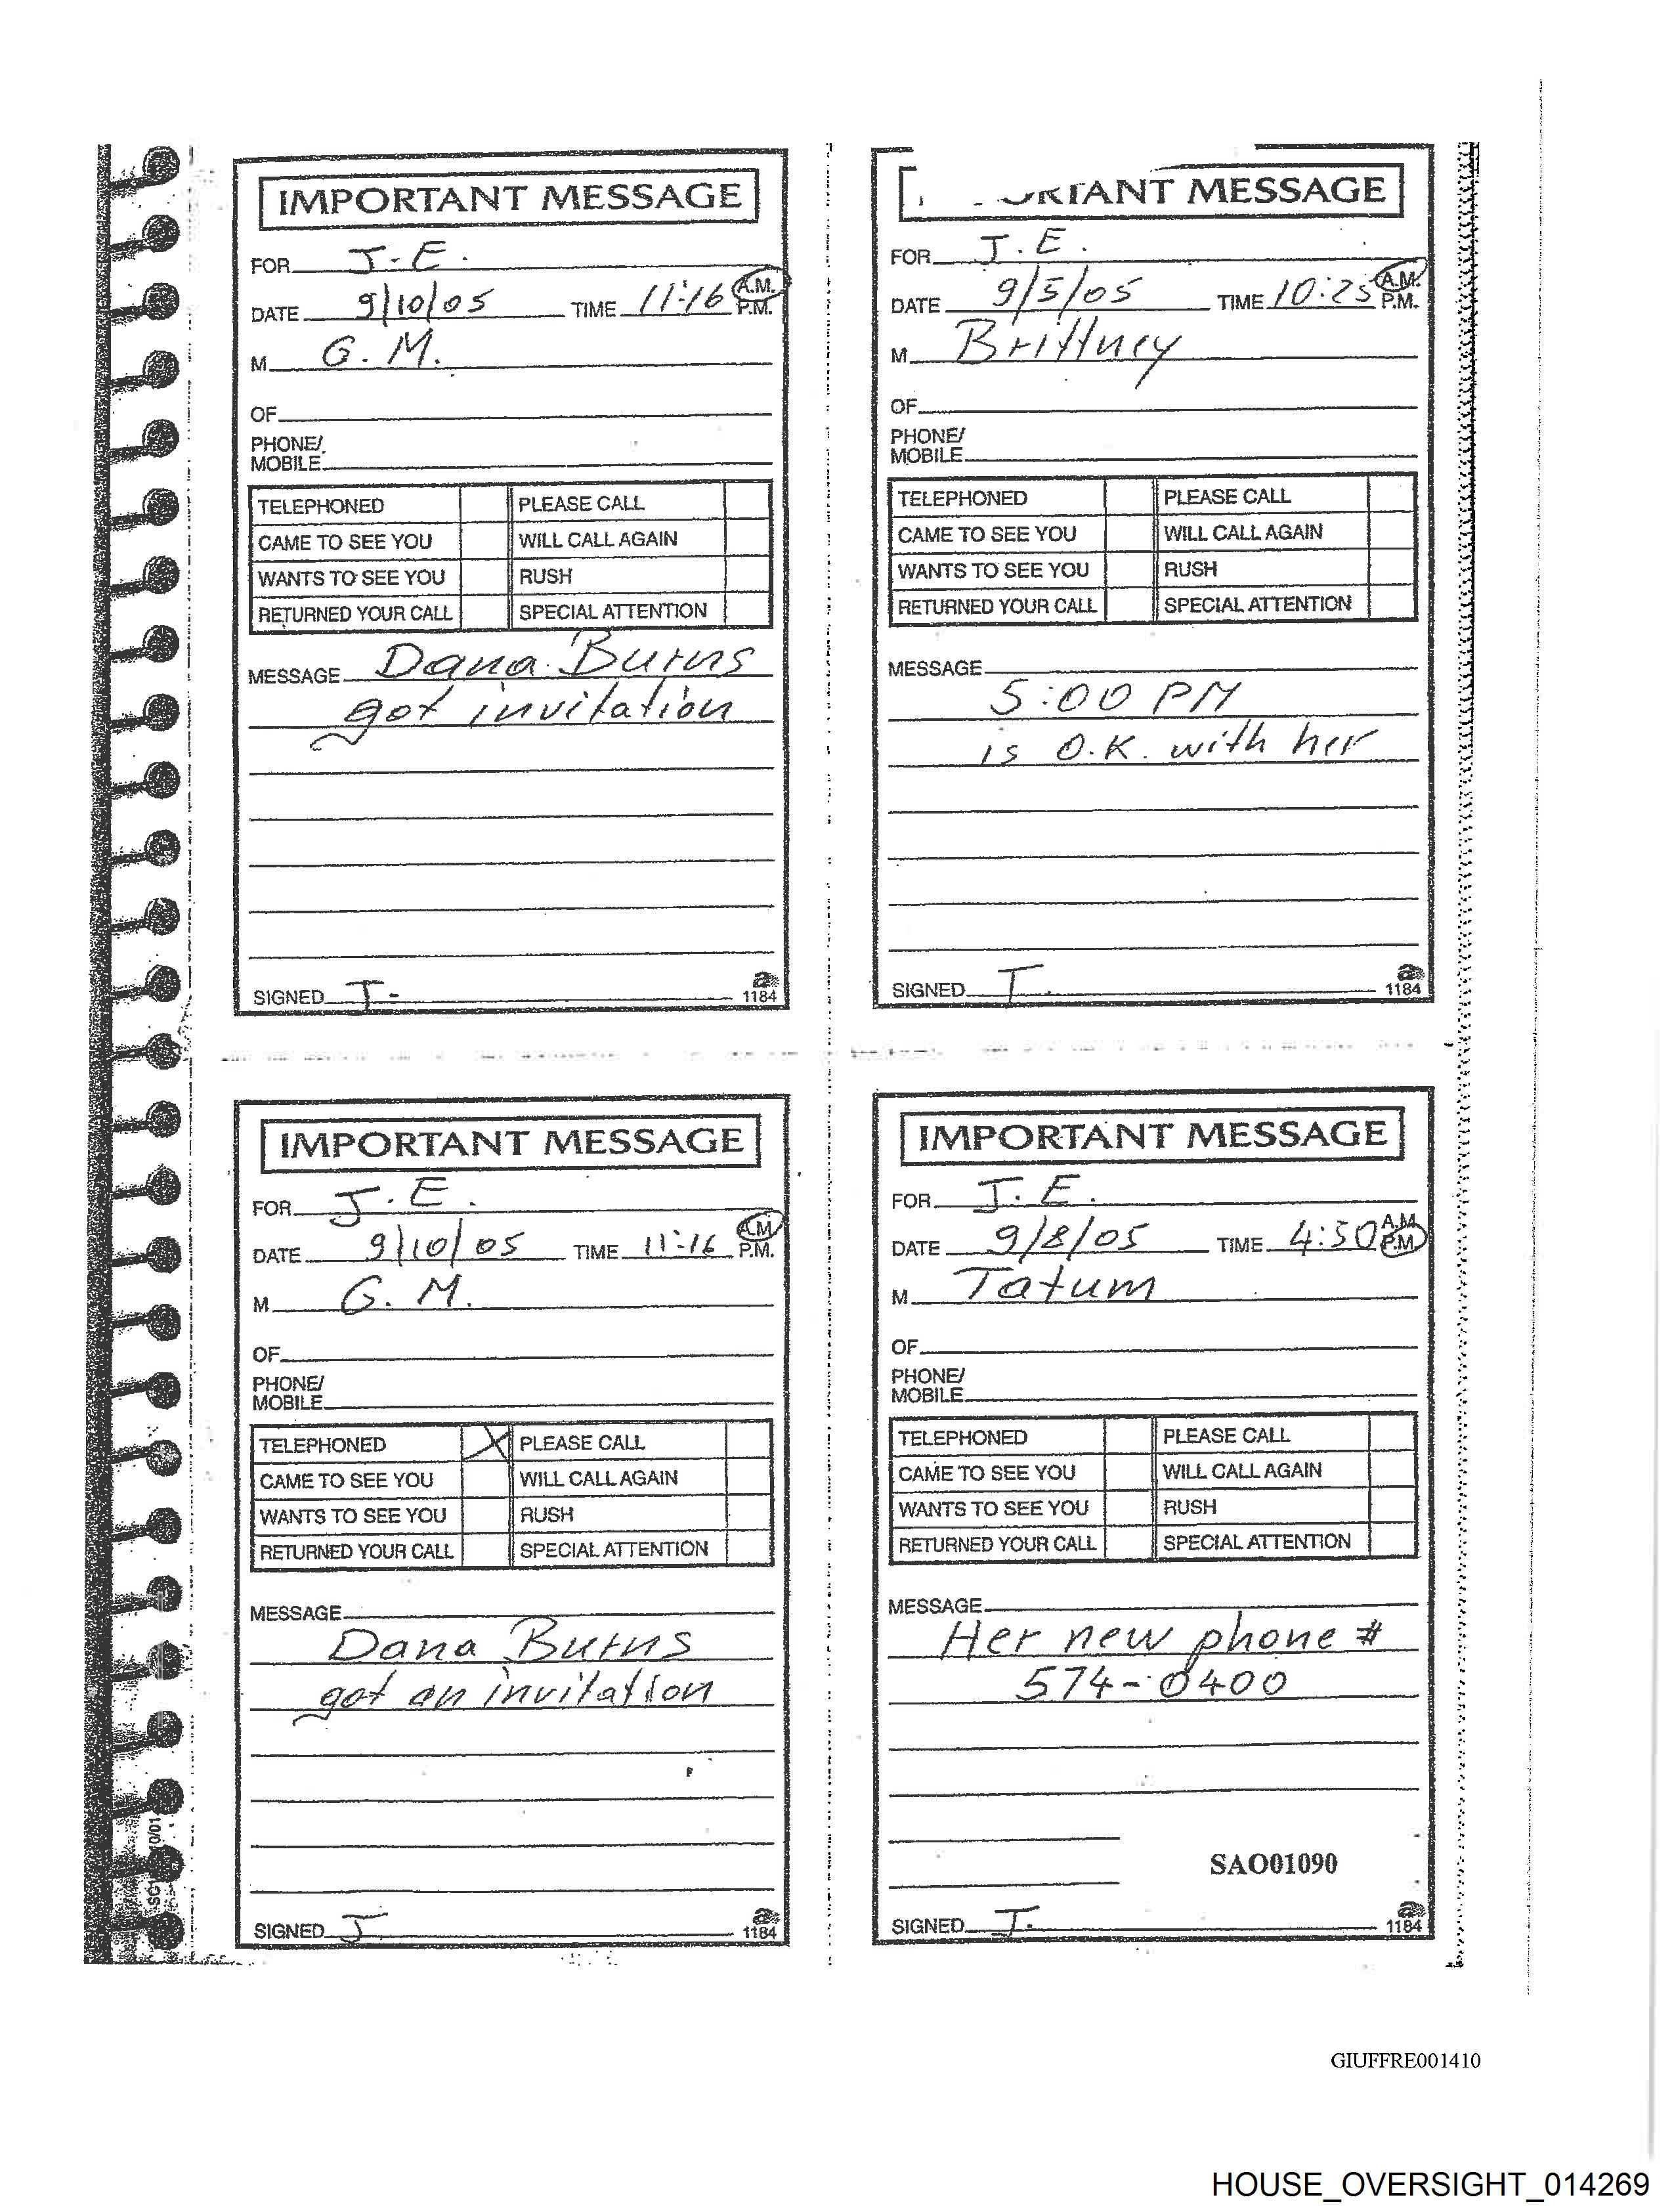 IMPORTANT MESSAGE
FOR J.E.
DATE 9/10/05 TIME 11:16 A.M. P.M.
M G.M.
OF
PHONE/
MOBILE
TELEPHONED PLEASE CALL
CAME TO SEE YOU WILL CALL AGAIN
WANTS TO SEE YOU RUSH
RETURNED YOUR CALL SPECIAL ATTENTION
MESSAGE Dana Burns
got invitation
SIGNED J.
1184
ORTANT MESSAGE
FOR J.E.
DATE 9/5/05 TIME 10:25 A.M. P.M.
M Brittney
OF
PHONE/
MOBILE
TELEPHONED PLEASE CALL
CAME TO SEE YOU WILL CALL AGAIN
WANTS TO SEE YOU RUSH
RETURNED YOUR CALL SPECIAL ATTENTION
MESSAGE
5:00 PM
is O.K. with her
SIGNED J.
1184
IMPORTANT MESSAGE
FOR J.E.
DATE 9/10/05 TIME 11:16 A.M. P.M.
M G.M.
OF
PHONE/
MOBILE
TELEPHONED X PLEASE CALL
CAME TO SEE YOU WILL CALL AGAIN
WANTS TO SEE YOU RUSH
RETURNED YOUR CALL SPECIAL ATTENTION
MESSAGE
Dana Burns
got an invitation
SIGNED J
1184
IMPORTANT MESSAGE
FOR J.E.
DATE 9/8/05 TIME 4:50 A.M. P.M.
M Tatum
OF
PHONE/
MOBILE
TELEPHONED PLEASE CALL
CAME TO SEE YOU WILL CALL AGAIN
WANTS TO SEE YOU RUSH
RETURNED YOUR CALL SPECIAL ATTENTION
MESSAGE
Her new phone #
574-0400
SAO01090
SIGNED J.
1184
GIUFFRE001410
HOUSE_OVERSIGHT_014269